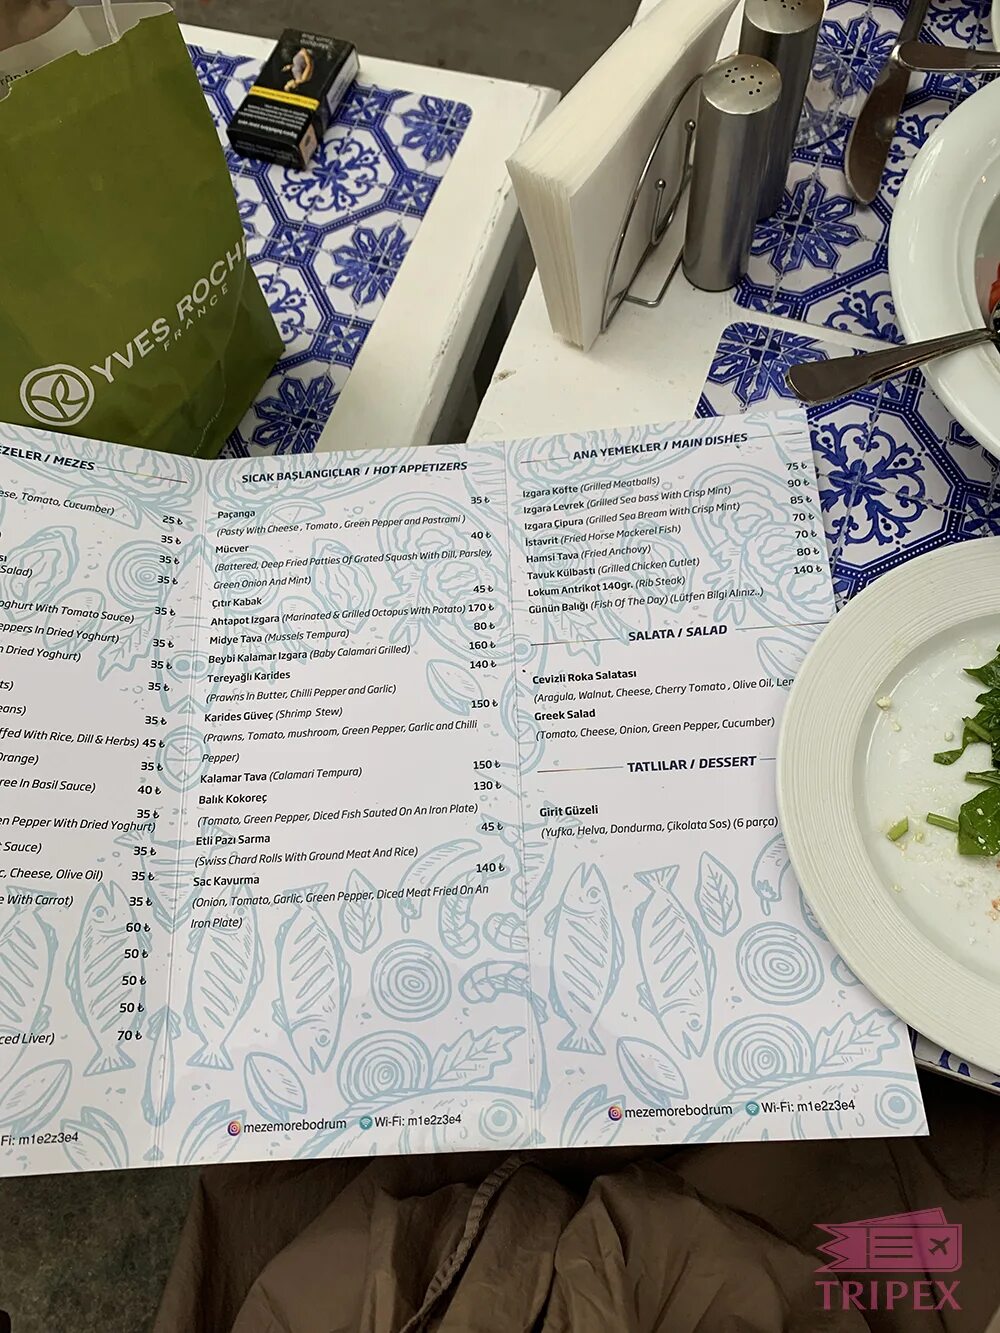 YVES ROCH
FRANCE
EZELER / MEZES
ese, Tomato, Cucumber)
25 ₺
35 ₺
35 ₺
Salad)
35 ₺
oghurt With Tomato Sauce)
35 ₺
eppers In Dried Yoghurt)
35 ₺
n Dried Yoghurt)
35 ₺
ts)
35 ₺
eans)
35 ₺
ffed With Rice, Dill & Herbs) 45 ₺
Orange)
35 ₺
ree In Basil Sauce)
40 ₺
35 ₺
en Pepper With Dried Yoghurt)
t Sauce)
35 ₺
c, Cheese, Olive Oil)
35 ₺
e With Carrot)
35 ₺
60 ₺
50 ₺
50 ₺
50 ₺
ced Liver)
70 ₺
Fi: m1e2z3e4
SICAK BAŞLANGIÇLAR / HOT APPETIZERS
Paçanga 35 ₺
(Pasty With Cheese , Tomato , Green Pepper and Pastrami )
Mücver 40 ₺
(Battered, Deep Fried Patties Of Grated Squash With Dill, Parsley,
Green Onion And Mint)
Çıtır Kabak 45 ₺
Ahtapot Izgara (Marinated & Grilled Octopus With Potato) 170 ₺
Midye Tava (Mussels Tempura) 80 ₺
Beybi Kalamar Izgara (Baby Calamari Grilled) 160 ₺
Tereyağlı Karides 140 ₺
(Prawns In Butter, Chilli Pepper and Garlic)
Karides Güveç (Shrimp Stew) 150 ₺
(Prawns, Tomato, mushroom, Green Pepper, Garlic and Chilli
Pepper)
Kalamar Tava (Calamari Tempura) 150 ₺
Balık Kokoreç 130 ₺
(Tomato, Green Pepper, Diced Fısh Sauted On An Iron Plate)
Etli Pazı Sarma 45 ₺
(Swiss Chard Rolls With Ground Meat And Rice)
Sac Kavurma 140 ₺
(Onion, Tomato, Garlic, Green Pepper, Diced Meat Fried On An
Iron Plate)
mezemorebodrum Wi-Fi: m1e2z3e4
ANA YEMEKLER / MAIN DISHES
Izgara Köfte (Grilled Meatballs) 75 ₺
Izgara Levrek (Grilled Sea bass With Crisp Mint) 90 ₺
Izgara Çipura (Grilled Sea Bream With Crisp Mint) 85 ₺
İstavrit (Fried Horse Mackerel Fish) 70 ₺
Hamsi Tava (Fried Anchovy) 70 ₺
Tavuk Külbastı (Grilled Chicken Cutlet) 80 ₺
Lokum Antrikot 140gr. (Rib Steak) 140 ₺
Günün Balığı (Fish Of The Day) (Lütfen Bilgi Alınız..)
SALATA / SALAD
Cevizli Roka Salatası
(Aragula, Walnut, Cheese, Cherry Tomato , Olive Oil, Len
Greek Salad
(Tomato, Cheese, Onion, Green Pepper, Cucumber)
TATLILAR / DESSERT
Girit Güzeli
(Yufka, Helva, Dondurma, Çikolata Sos) (6 parça)
mezemorebodrum Wi-Fi: m1e2z3e4
TRIPEX